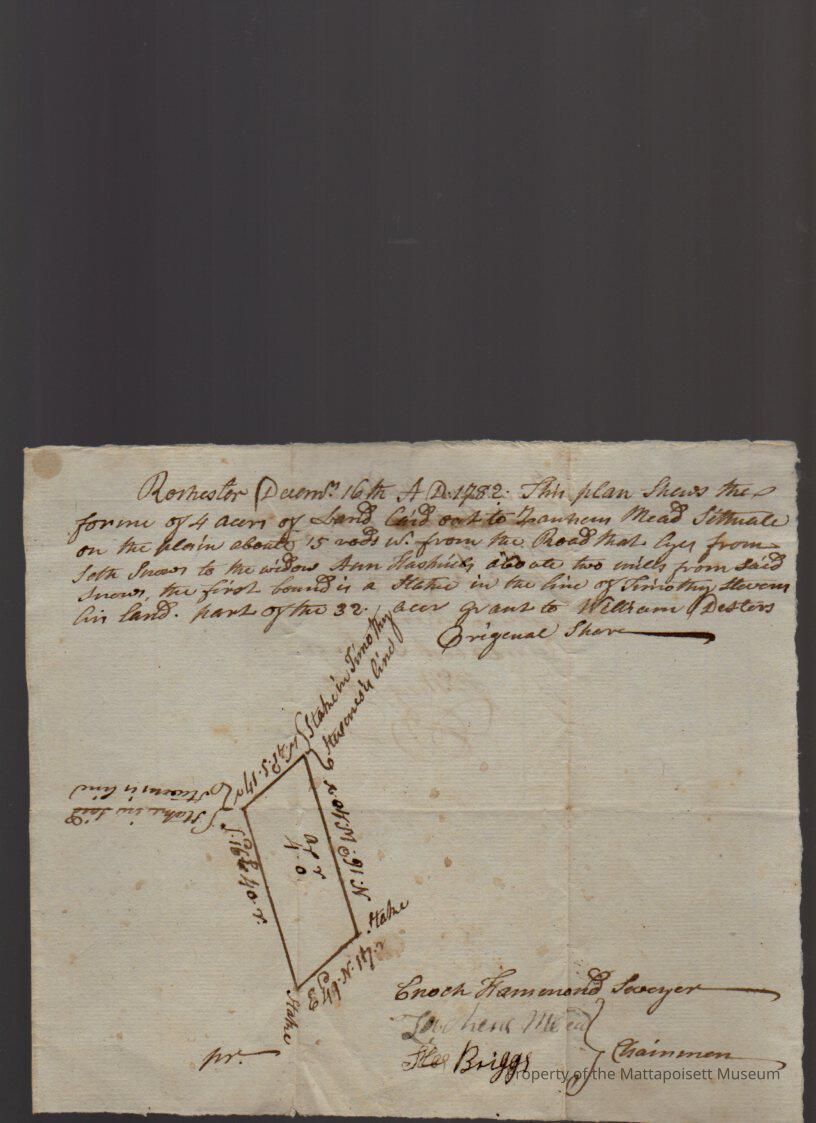 Rochester Decem.r 16th A D. 1782. This plan Shews the
forme of 4 acers of Land Laid out to Mead Sittuate
on the plain aboute 15 rods w. from the Road that Lyes from
Seth Snows to the widow Ann Haskills aboute two miles from said
Snows, the first bound is a Stake in the line of Timothy Steven
sis land. part of the 32. acer grant to William
Origenal Share
Stake in Timothy
line
Stake in said
line
S. 16 E 40. r.
N. 16. W. 40 r
ac r
4. 0
Stake
E N. 17. r
Stake
Enoch Hammond Soveyer
Mead
Briggs
Chainmen
pr.
Property of the Mattapoisett Museum